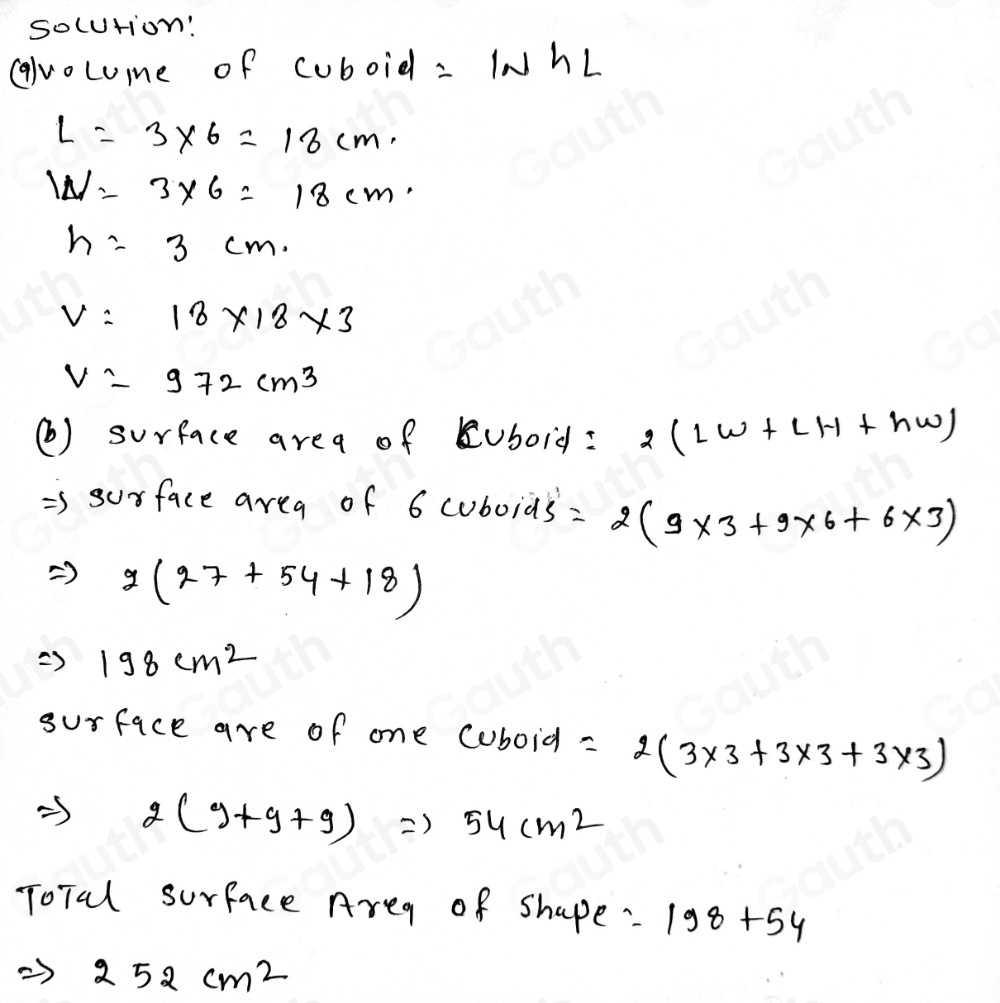 Solution:
(a) volume of cuboid = W h L
L = 3 × 6 = 18 cm.
W = 3 × 6 = 18 cm.
h = 3 cm.
V = 18 × 18 × 3
V = 972 cm3
(b) surface area of cuboid = 2 (LW + LH + hw)
=> surface area of 6 cuboids = 2 (9 × 3 + 9 × 6 + 6 × 3)
=> 2 (27 + 54 + 18)
=> 198 cm2
surface are of one cuboid = 2 (3×3 + 3×3 + 3×3)
=> 2 (9+9+9) => 54 cm2
Total surface Area of shape = 198 + 54
=> 252 cm2